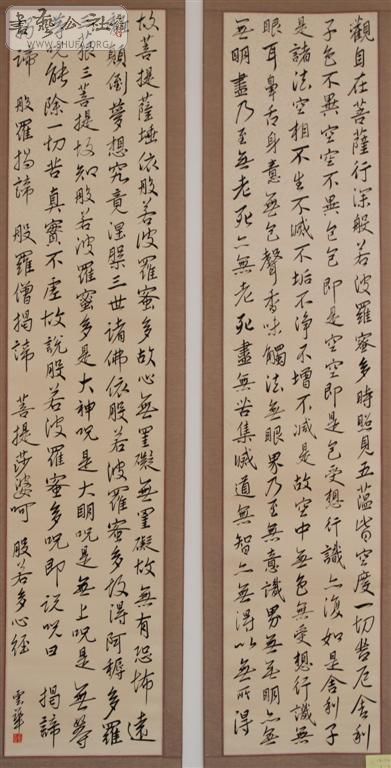 觀自在菩薩行深般若波羅蜜多時照見五蘊皆空度一切苦厄舍利
子色不異空空不異色色即是空空即是色受想行識亦復如是舍利子
是諸法空相不生不滅不垢不淨不增不減是故空中無色無受想行識無
眼耳鼻舌身意無色聲香味觸法無眼界乃至無意識界無無明亦無
無明盡乃至無老死亦無老死盡無苦集滅道無智亦無得以無所得
故菩提薩埵依般若波羅蜜多故心無罣礙無罣礙故無有恐怖遠
離顛倒夢想究竟涅槃三世諸佛依般若波羅蜜多故得阿耨多羅
三藐三菩提故知般若波羅蜜多是大神呪是大明呪是無上呪是無等
等呪能除一切苦真實不虛故說般若波羅蜜多呪即說呪曰 揭諦
揭諦 般羅揭諦 般羅僧揭諦 菩提莎婆呵 般若多心經
雲華
WWW.SHUFA.ORG